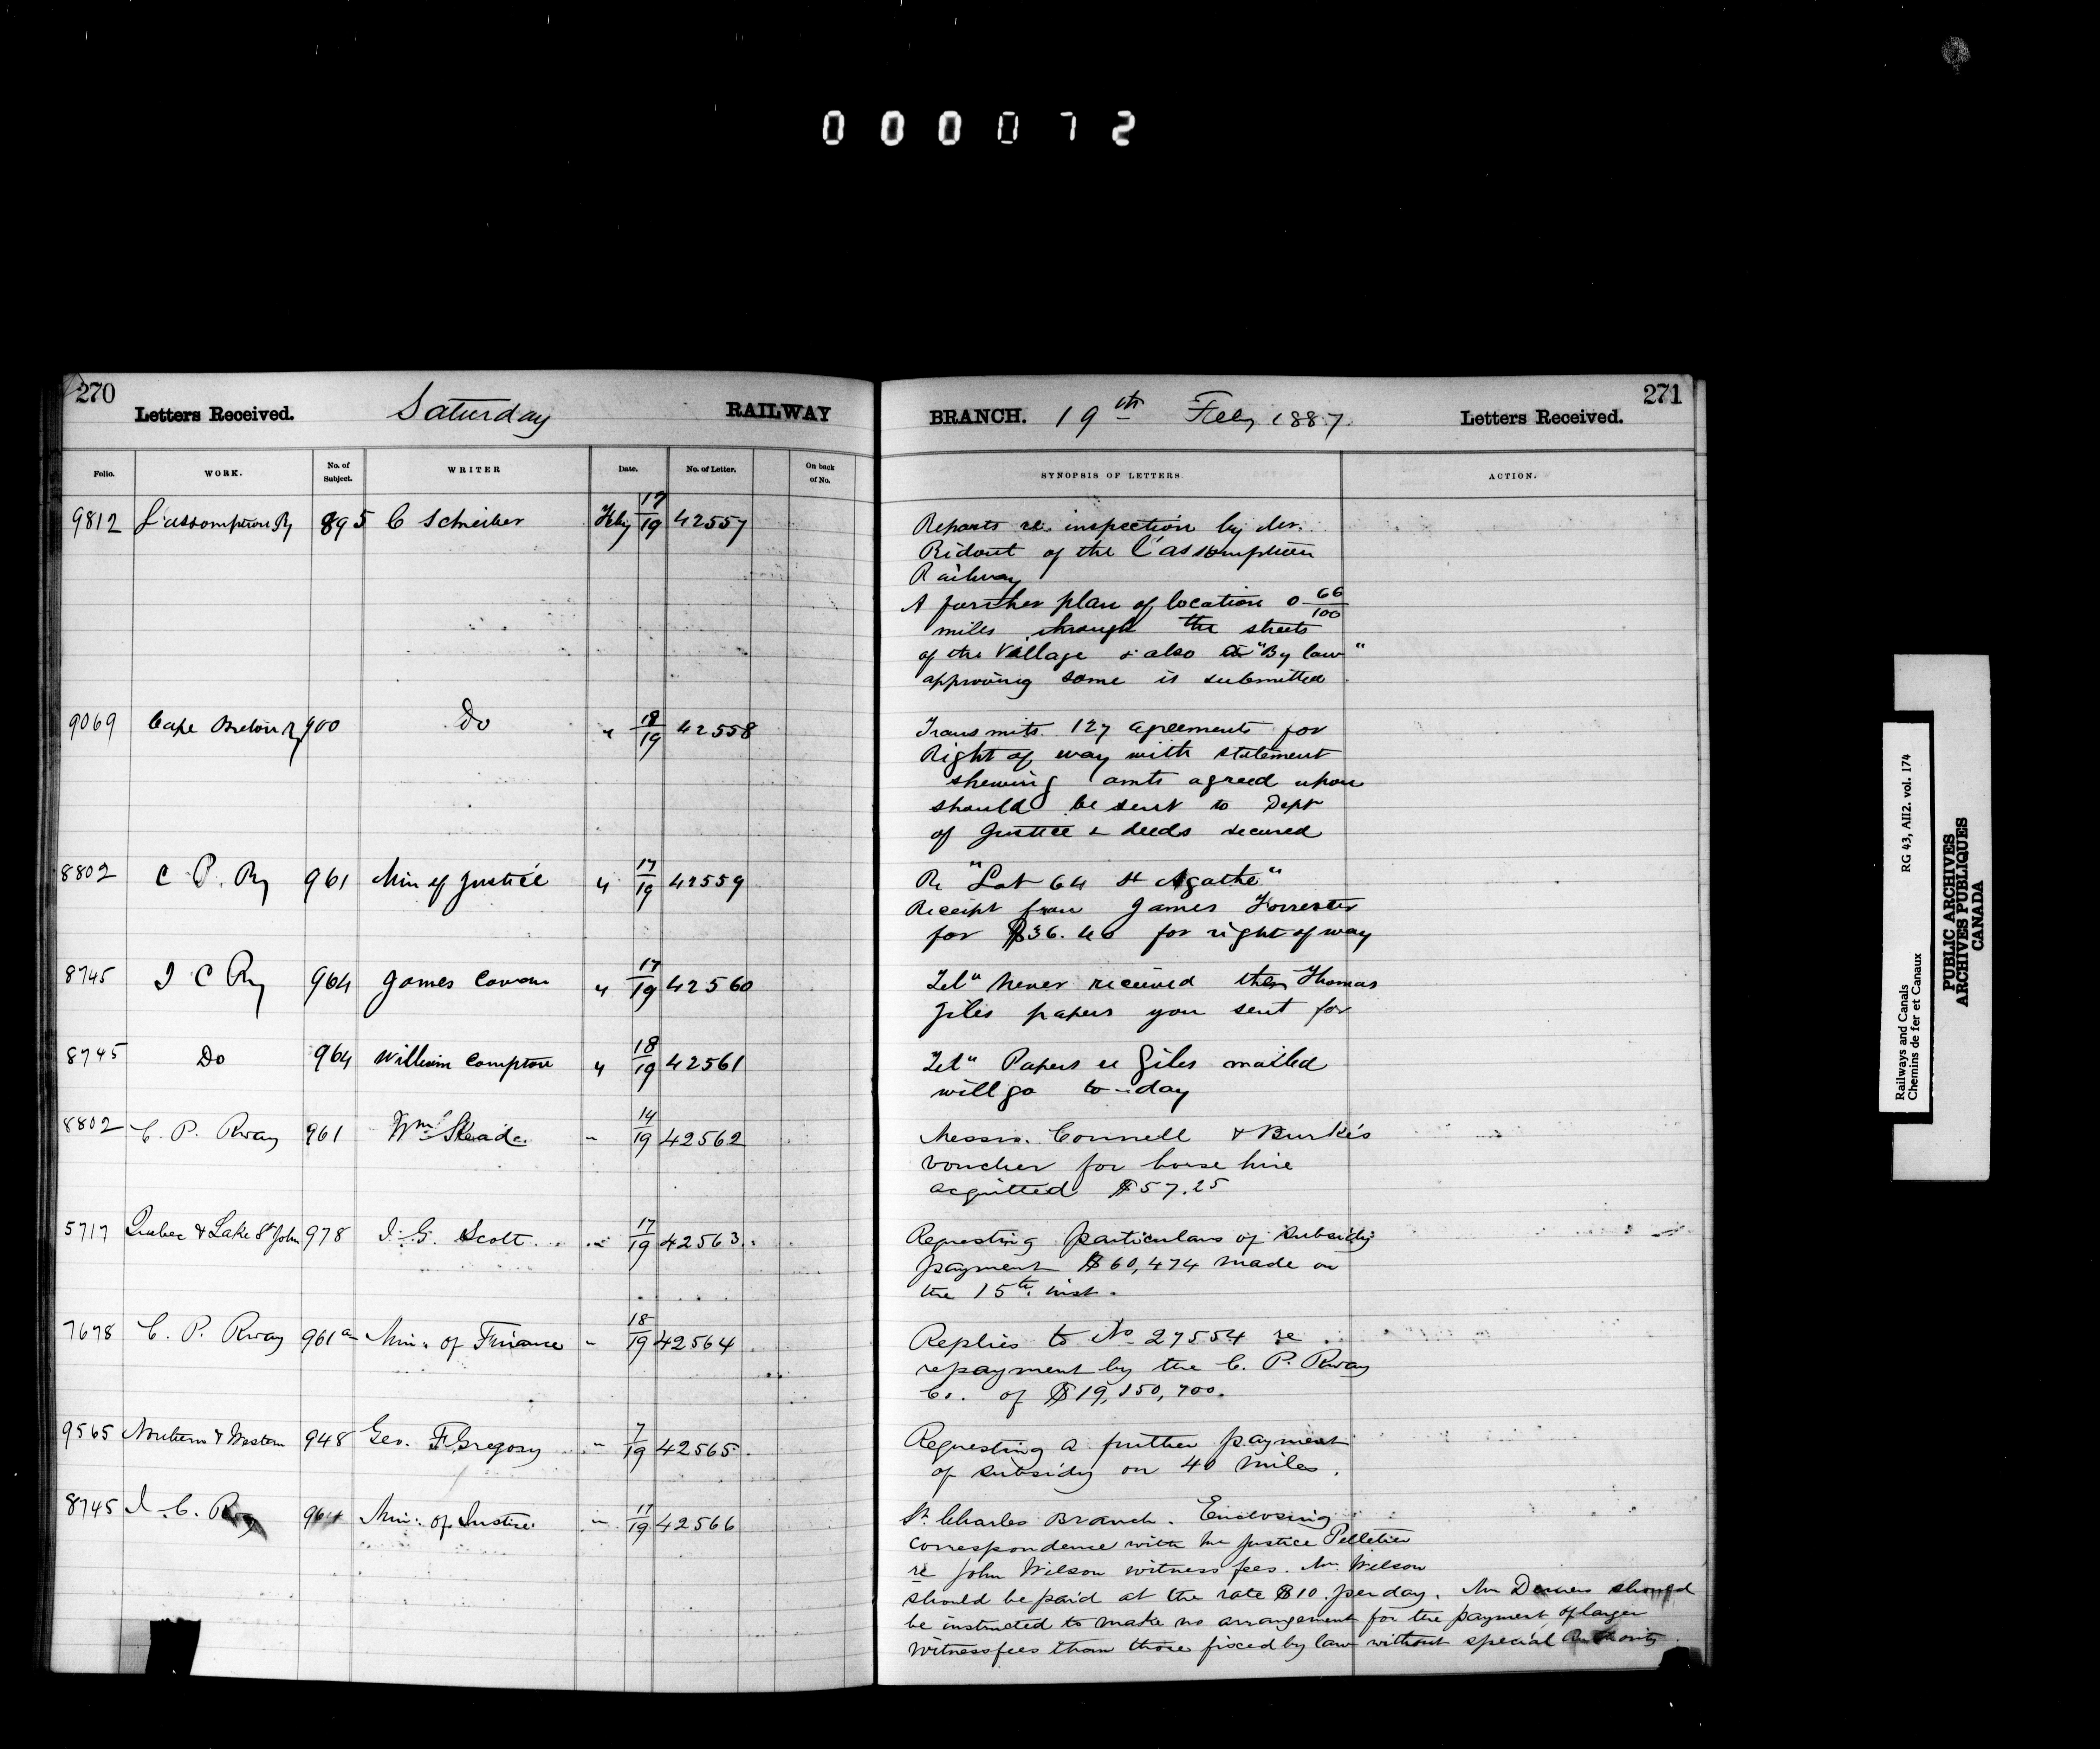 000072
270
Letters Received. Saturday RAILWAY
Folio. WORK. No. of Subject. WRITER Date. No. of Letter. On back of No.
9812 L'assomption Ry 895 C Schreiber Feby 17/19 42557
9069 Cape Breton Ry 900 Do " 18/19 42558
8802 C P. Ry 961 Min of Justice " 17/19 42559
8745 I C Ry 964 James Cowan " 17/19 42560
8745 Do 964 William Compton " 18/19 42561
8802 C. P. Rway 961 Wm Skead " 14/19 42562
5717 Quebec & Lake St John 978 J. G. Scott " 17/19 42563
7678 C. P. Rway 961a Min. of Finance " 18/19 42564
9565 Northern & Western 948 Geo. F Gregory " 7/19 42565
8745 I. C. Rway 964 Min. of Justice " 17/19 42566
271
BRANCH. 19th Feby 1887. Letters Received.
SYNOPSIS OF LETTERS. ACTION.
Reports re inspection by
Ridout of the L'assomption
Railway
A further plan of location 0 66/100
miles through the streets
of the Village & also a "By law"
approving same is submitted
Transmits 127 agreements for
Right of way with statement
shewing amts agreed upon
should be sent to Dept
of Justice & deeds secured
Re "Lot 64 St Agathe"
Receipt from James Forrester
for $36.40 for right of way
Tel" Never received them Thomas
Giles papers you sent for
Tel" Papers re Giles mailed
will go to-day
Messrs. Connell & Burke's
voucher for horse hire
acquitted $57.25
Requesting particulars of subsidy
payment $60,474 made on
the 15th inst.
Replies to No 27554 re
repayment by the C. P. Rway
Co. of $19,150,700.
Requesting a further payment
of subsidy on 40 miles.
St. Charles Branch. Enclosing
correspondence with Mr Justice Pelletier
re John Wilson witness fees. Mr. Wilson
should be paid at the rate $10. per day. Mr should
be instructed to make no arrangement for the payment of larger
witness fees than those fixed by law without special authority.
Railways and Canals RG 43, AII2. vol. 174
Chemins de fer et Canaux
PUBLIC ARCHIVES
ARCHIVES PUBLIQUES
CANADA